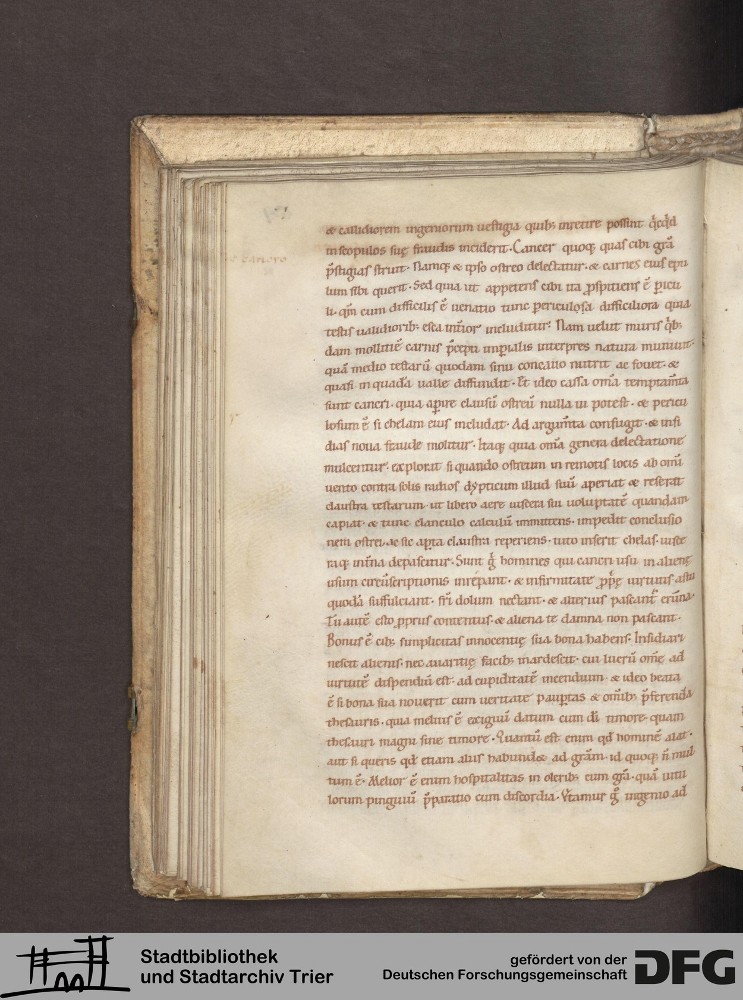 & callidiorem ingeniorum uestigia quib; inretire possint q̇cq̇d
de cancro
in scopulos suę fraudis inciderit. Cancer quoq; quas cibi grā
p̄stigias struit. Namq; & ipso ostreo delectatur. & carnes eius epu
lum sibi querit. Sed quia ut appetens cibi ita ꝓspitiens ē pericu
li. qm̄ cum difficilis ē uenatio tunc periculosa difficiliora quia
testis ualidiorib; esca int̄ior includitur. Nam uelut muris q̇b;
dam mollitiē carnis p̄cepti imp̄ialis interpres natura muniuit.
quā medio testarū quodam sinu concauo nutrit ac fouet. &
quasi in quadā ualle diffundit. Et ideo cassa om̄a temptam̄ta
sunt cancri. quia apire clausū ostreū nulla ui potest. & pericu
losum ē si chelam eius includat. Ad argum̄ta confugit. & insi
dias noua fraude molitur. Itaq; quia om̄a genera delectatione
mulcentur. explorat si quando ostreum in remotis locis ab om̄i
uento contra solis radios dypticum illud suū aperiat & reserat
claustra testarum. ut libero aere uiscera sui uoluptatē quandam
capiat. & tunc clanculo calculū immittens. impedit conclusio
nem ostrei. ac sic apta claustra reperiens. tuto inserit chelas. uisce
raq; int̄na depascitur. Sunt g̊ homines qui cancri usu in alienę
usum circūscriptionis inrepant. & infirmitatē ꝓp̄ę uirtutis astu
quodā suffulciant. fri dolum nectant. & alterius pascant̄ erūna.
Tu autē esto ꝓprus contentus. & aliena te damna non pascant.
Bonus ē cib; simplicitas innocentię sua bona habens. Insidiari
nescit alienis. nec auaritię facib; inardescit. cui lucrū om̄e ad
uirtutē dispendiū est. ad cupiditatē incendium. & ideo beata
ē si bona sua nouerit cum ueritate paup̄tas & om̄ib; p̄ferenda
thesauris. quia melius ē exiguū datum cum dī timore. quam
thesauri magni sine timore. Quantū est enim qd̓ hominē alat.
aut si queris qd̓ etiam aliis habundet ad grām. id quoq; n̄ mul
tum ē. Melior ē enim hospitalitas in olerib; cum grā. quā uitu
lorum pinguiū p̄paratio cum discordia. Vtamur g̊ ingenio ad
Stadtbibliothek
und Stadtarchiv Trier
gefördert von der
Deutschen Forschungsgemeinschaft
DFG